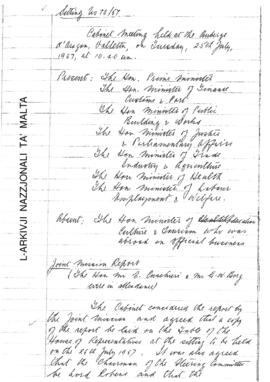 Sitting No 78/67
Cabinet Meeting held at the Auberge
d'Aragon, Valletta, on Tuesday, 25th July,
1967, at 10.20 am.
Present: The Hon. Prime Minister
The Hon. Minister of Finance
Customs & Port
The Hon Minister of Public
Building & Works
The Hon Minister of Justice
& Parliamentary Affairs
The Hon Minister of Trade
Industry & Agriculture
The Hon Minister of Health
The Hon Minister of Labour
Employment & Welfare.
Absent: The Hon Minister of
Culture & Tourism who was
abroad on official business
Joint Mission Report
(The Hon Mr E. & Mr G. W. Borg
were in attendance)
The Cabinet considered the report by
the Joint Mission and agreed that a copy
of the report be laid on the Table of the
House of Representatives at the sitting to be held
on the 26th July 1967. It was also agreed
that the Chairman of the Steering Committee
be Lord Robens and that the
L-ARKIVJI NAZZJONALI TA' MALTA